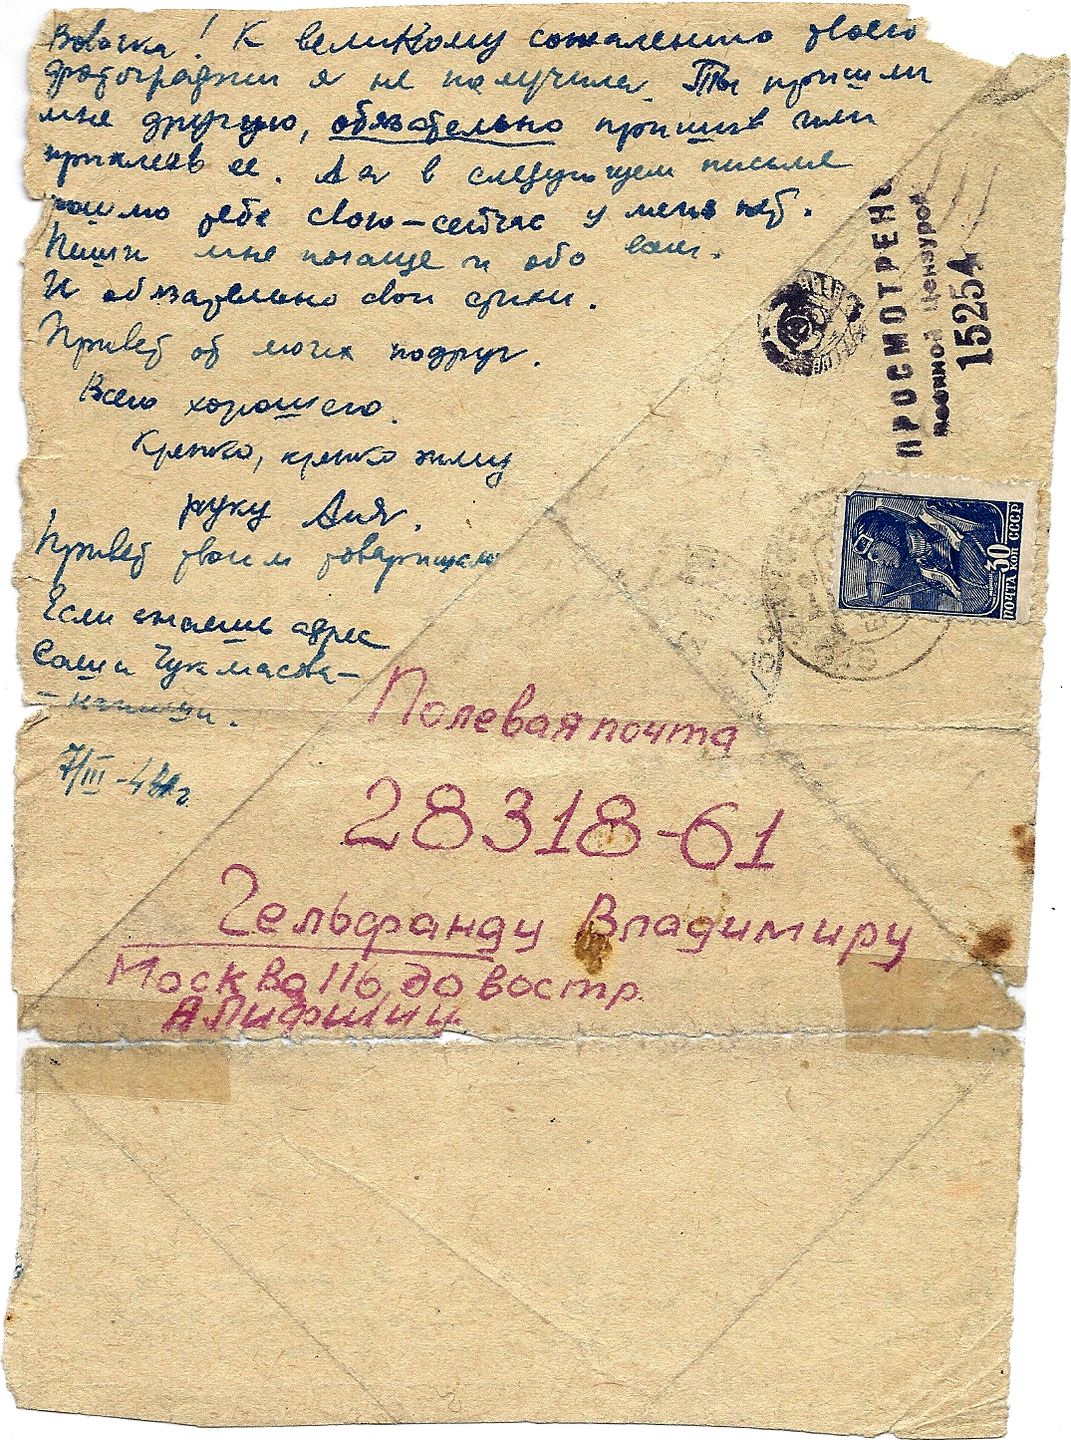 Вовочка! К великому сожалению твоей
фотографии я не получила. Ты пришли
мне другую, обязательно пришив или
приклеив ее. А я в следующем письме
вышлю тебе свою – сейчас у меня нет.
Пиши мне почаще и обо всем.
И обязательно свои стихи.
Привет от моих подруг.
Всего хорошего.
Крепко, крепко жму
руку Аня.
Привет твоим товарищам
Если знаешь адрес
Саши Чукмасова –
– напиши.
7/III-44г.
ПРОСМОТРЕНО
Военной Цензурой
15254
30
ПОЧТА КОП СССР
Полевая почта
28318-61
Гельфанду Владимиру
Москва 116, до востр.
А. Лифшиц